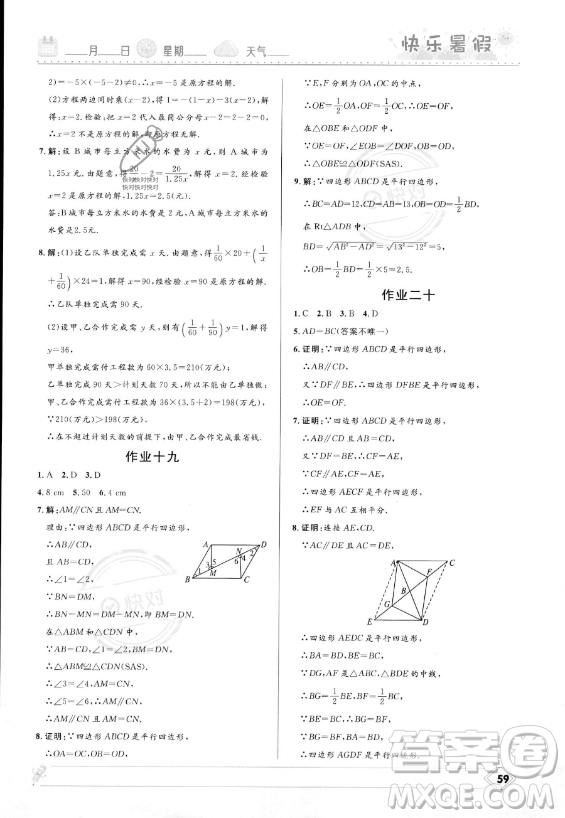 月 日 星期 天气
快乐暑假
2)=-5×(-5-2)≠0,∴x=-5是原方程的解.
(2)方程两边同时乘(x-2),得1=-(1-x)-3(x-2).
解得:x=2.检验:把x=2代入最简公分母x-2=0,
∴x=2不是原方程的解,∴原方程无解.
7.解:设B城市每立方米水的水费为x元,则A城市为
1.25x元.由题意,得20/x-20/1.25x
快对快对快对
快对快对快对
答:B城市每立方米水的水费是2元,A城市每立方米
水的水费是2.5元.
8.解:(1)设乙队单独完成需x天.由题意,得1/60×20+(1/x
+1/60)×24=1,解得x=90,经检验x是原方程的解.
∴乙队单独完成需90天.
(2)设甲、乙合作完成需y天,则有(1/60+1/90)y=1.解得
y=36,
甲单独完成需付工程款为60×3.5=210(万元)
乙单独完成需90天>计划天数70天,∴乙不能单独做;
甲、乙合作完成需付工程款为36×(3.5+2)=198(万元)
∵210(万元)>198(万元)
∴在不超过计划天数的前提下,由甲、乙合作完成最省钱.
作业十九
1.A 2.D 3.D
4.8 cm 5.50 6.4 cm
7.解:AM∥CN且AM=CN.
理由:∵四边形ABCD是平行四边形,
∴AB=CD,AB∥CD,
∴∠1=∠2,
∵BN=DM,
∴BN-MN=DM-MN,即BM=DN,
在△ABM和△CDN中,
∵AB=CD,∠1=∠2,BM=DN,
∴△ABM≌△CDN(SAS).
∴∠3=∠4,AM=CN,
∴∠5=∠6,
∴AM∥CN
∴AM∥CN且AM=CN.
8.证明:∵四边形ABCD是平行四边形,
∴OA=OC,OB=OD.
A D N M B C 1 2 3 4 5 6
∵E、F分别为OA、OC的中点,
∴OE=1/2OA,OF=1/2OC,
∴OE=OF,
在△OBE和△ODF中,
∵OE=OF,∠EOB=∠FOD,OB=OD,
∴△OBE≌△ODF(SAS).
9.解:∵四边形ABCD是平行四边形,
∴BC=AD=12,DC=AB=13,OB=OD=1/2BD,
在Rt△ADB中,
BD=√AB²-AD²=√13²-12²=5,
∴OB=1/2BD=1/2×5=2.5.
作业二十
1.C 2.B 3.B 4.D
5.AD=BC(答案不唯一)
6.证明:∵四边形ABCD是平行四边形,
∴AB∥CD,
∵四边形DFBE是平行四边形,
∴OE=OF.
7.证明:∵四边形ABCD是平行四边形,
∴AB∥CD,AB=CD.
∵CF∥BD,
∴四边形BDCF是平行四边形,
∴CF=BD,
∵AE=BD,
∴CF=AE,
又∵CF∥AE,
∴四边形AECF是平行四边形,
∴EF与AC互相平分.
8.证明:连接AE、CD.
∵AC∥DE,AC=DE,
A C F B G E D
∴四边形AEDC是平行四边形,
∴BA=BD,BC=BE,
∵BG、BF是△ABE和△BCD的中线,
∴BG=1/2BE,BF=1/2BC,
∵BE=BC,
∴BG=BF,
∴四边形AGDF是平行四边形.
快对
答案圈
MXQE.COM
59